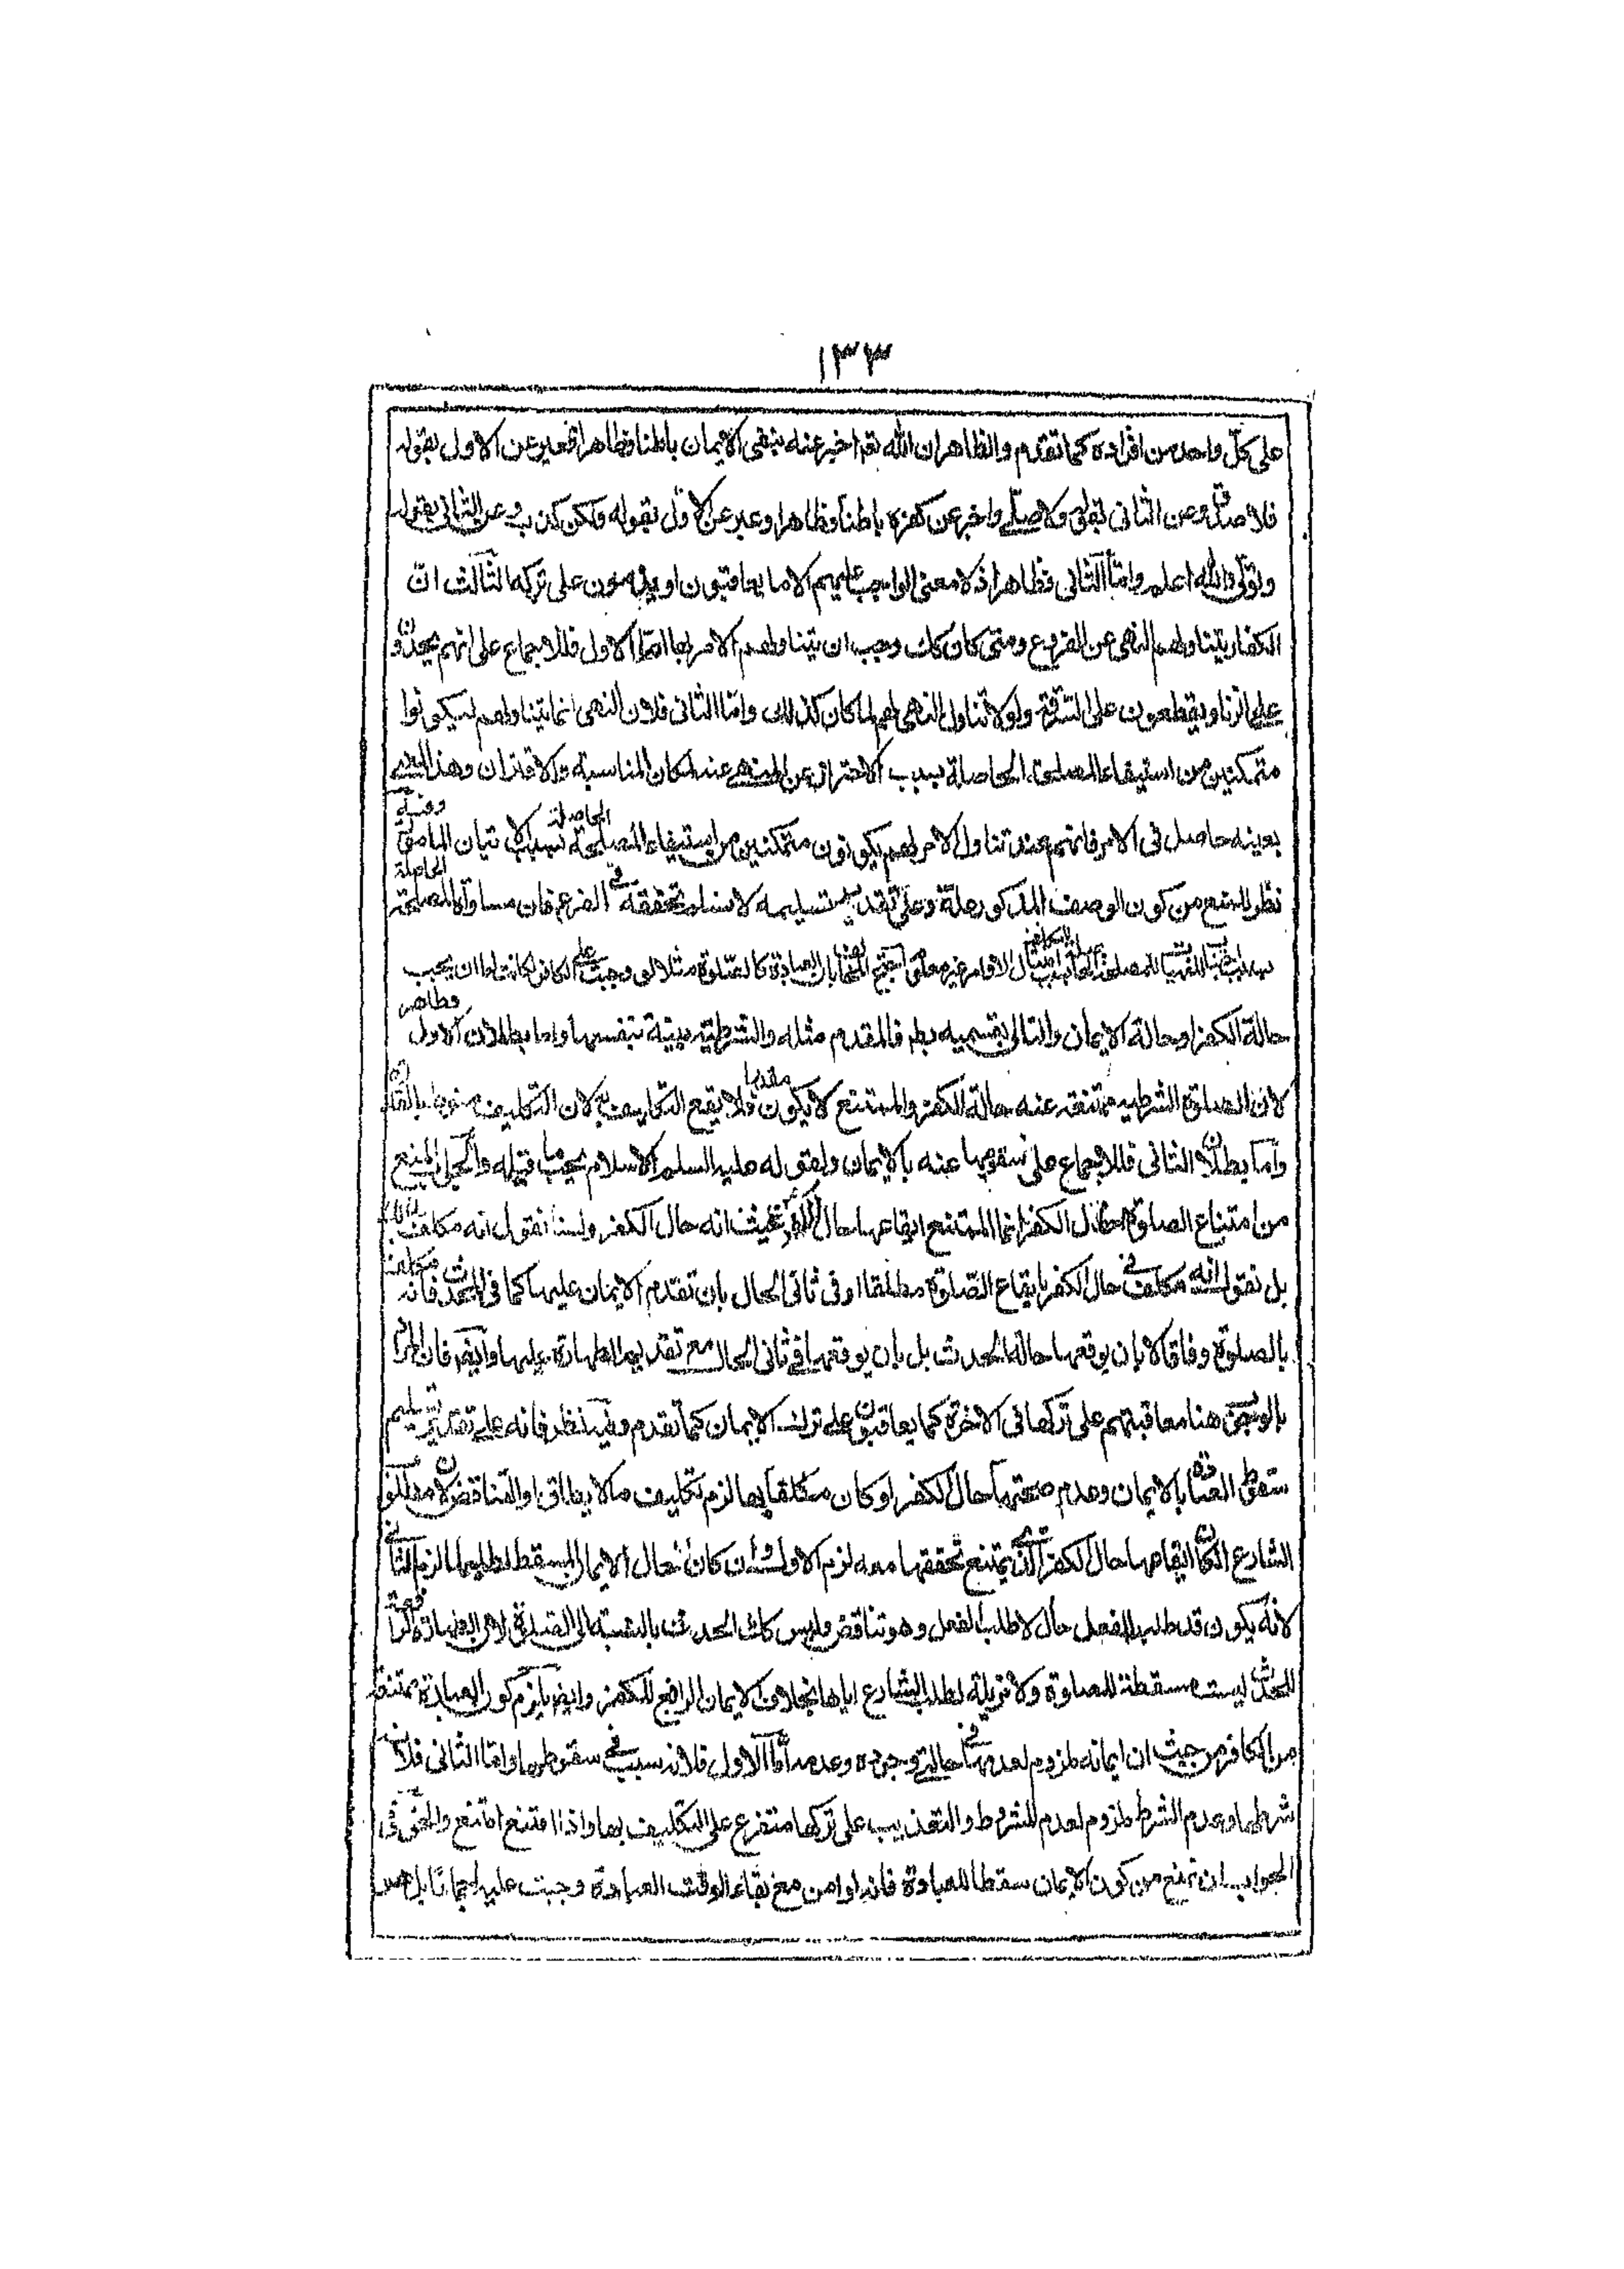 ١٣٣
على كل واحد من افراده كما تقدم والظاهر ان الله تعم اخبر عنه بنفى الايمان باطنا وظاهرا فعبر عن الاول بقوله
فلا صدق وعن الثانى بقوله ولا صلى واخبر عن كفره باطنا وظاهرا وعبر عن الاول بقوله ولكن كذب وعن الثانى بقوله
وتولى والله اعلم واما الثانى فظاهر اذ لا معنى الواجب عليهم الا ما يعاقبون او يذمون على تركه الثالث ان
الكفار يتناولهم النهى عن الفروع ومتى كان كك وجب ان يتناولهم الامر بها اما الاول فللاجماع على انهم يحدون
على الزنا ويقطعون على السرقة ولولا تناول النهى لهم لما كان كذلك واما الثانى فلان النهى انما يتناولهم ليكونوا
متمكنين من استيفاء المصلحة الحاصلة بسبب الاحتراز عن المنهى عنه لمكان المناسبة والاقتران وهذا المعنى
بعينه حاصل فى الامر فانهم عند تناول الامر لهم يكونون متمكنين من استيفاء المصلحة الحاصلة بسبب الاتيان المامور وفيه
نظر للمنع من كون الوصف المذكور علة وعلى تقدير تسليمه لا نسلم تحققه فى الفرع فان مساواة المصلحة الحاصلة
بسبب اجتناب المنهيات للمصلحة الحاصلة بسبب امتثال الاوامر غير معلوم احتج المخالف بان العبادة كالصلوة مثلا لو وجبت على الكافر لكانت اما ان يجب
حالة الكفر او حالة الايمان والتالى بقسميه بطم فالمقدم مثله والشرطية بينة بنفسها واما بطلان الاول فظاهر
لان الصلوة الشرطية ممتنعة عنه حالة الكفر والممتنع لا يكون مقدورا فلا يقع التكليف به لان التكليف مشروط بالقدرة
واما بطلان الثانى فللاجماع على سقوطها عنه بالايمان ولقوله عليه السلم الاسلام يجب ما قبله والجواب المنع
من امتناع الصلوة حال الكفر انما الممتنع ايقاعها حال الكفر من حيث انه حال الكفر ولسنا نقول انه مكلف
بل نقول انه مكلف فى حال الكفر بايقاع الصلوة مطلقا او فى ثانى الحال بان تقدم الايمان عليها كما فى المحدث فانه مكلف
بالصلوة وفاقا لا بان يوقعها حالة الحدث بل بان يوقعها فى ثانى الحال مع تقديم الطهارة عليها وايضم فان المراد
بالوجوب هنا معاقبتهم على تركها فى الاخرة كما يعاقبون على ترك الايمان كما تقدم وفيه نظر فانه على تقدير تسليم
سقوط العبادة بالايمان وعدم صحتها حال الكفر لو كان مكلفا بها لزم تكليف ما لا يطاق او التناقض لان مطلوب
الشارع ان كان ايقاعها حال الكفر الذى يمتنع تحققها معه لزم الاول وان كان حال الايمان المسقط لطلبها لزم الثانى
لانه يكون قد طلب الفعل حال لا طلب الفعل وهو تناقض وليس كك المحدث بالنسبة الى الصلوة لان الطهارة الرافعة
للحدث ليست مسقطة للصلوة ولا مزيلة لطلب الشارع اياها بخلاف الايمان الرافع للكفر وايضم يلزم كون العبادة ممتنعة
من الكافر من حيث ان ايمانه ملزوم لعدمها فى حالتى وجوده وعدمه اما الاول فلانه سبب فى سقوطها واما الثانى فلان
شرطها وعدم الشرط ملزوم لعدم المشروط والتعذيب على تركها متفرع على التكليف بها واذا امتنع امتنع والحق فى
الجواب ان نمنع من كون الايمان سقطا للعبادة فانه لو امن مع بقاء الوقت العبادة وجبت عليه اجماعا